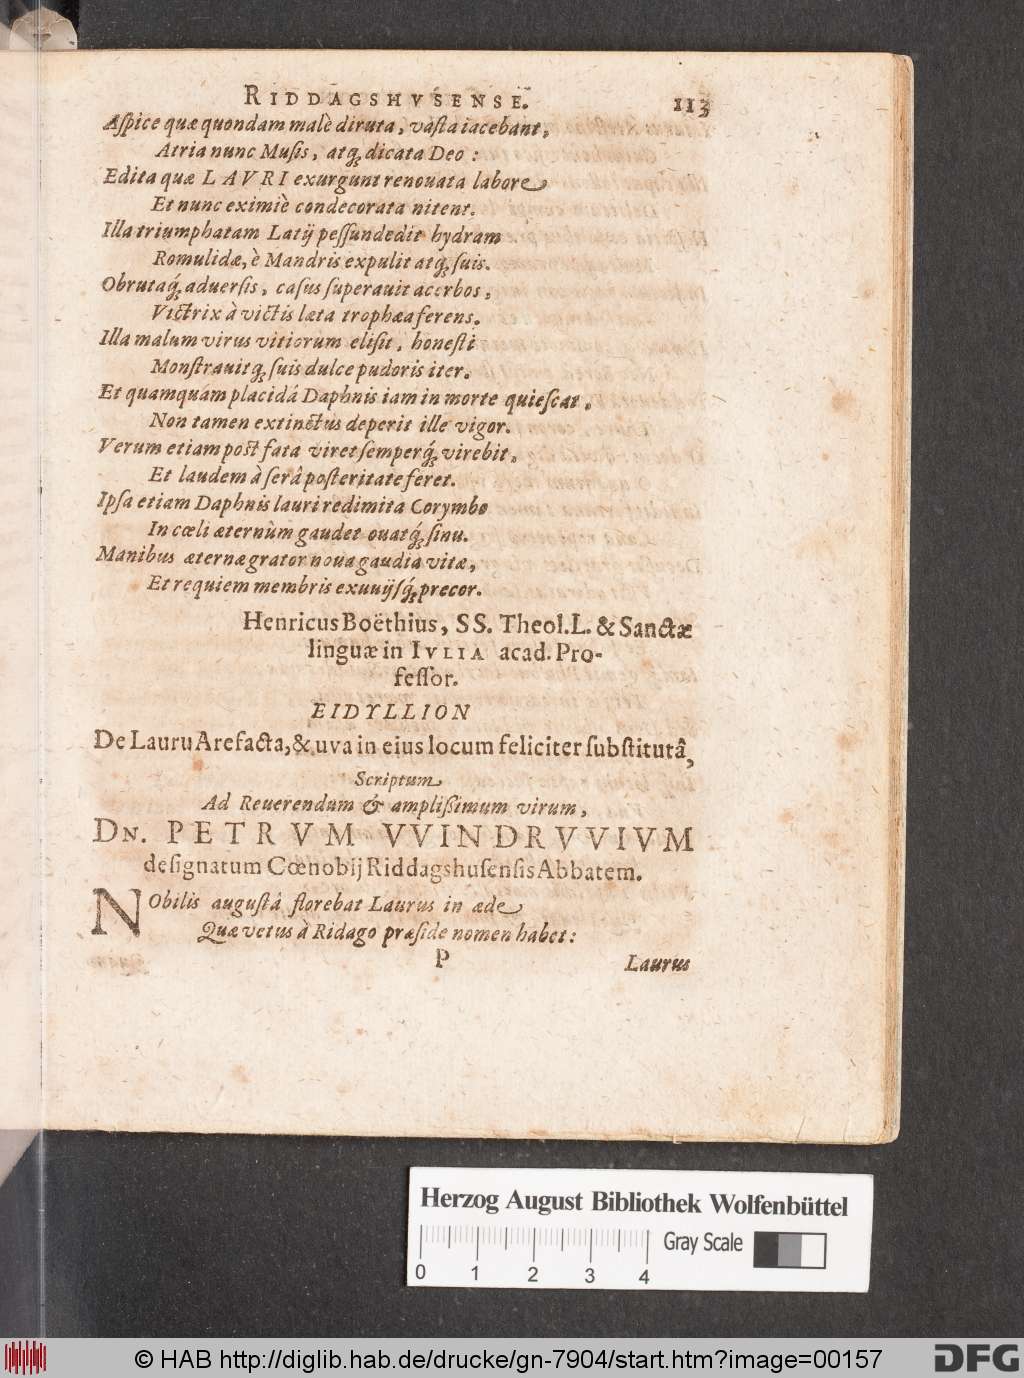 RIDDAGSHVSENSE. 113
Aſpice quæ quondam malè diruta, vaſta iacebant,
Atria nunc Muſis, atq́ꝫ dicata Deo:
Edita quæ LAVRI exurgunt renouata labore
Et nunc eximiè condecorata nitent.
Illa triumphatam Latij peſſundedit hydram
Romulidæ, è Mandris expulit atq́ꝫ ſuis.
Obrutaq́ꝫ aduerſis, caſus ſuperauit acerbos,
Victrix à victis læta trophæa ferens.
Illa malum virus vitiorum eliſit, honeſti
Monſtrauitq́ꝫ ſuis dulce pudoris iter.
Et quamquam placidá Daphnis iam in morte quieſcat,
Non tamen extinctus deperit ille vigor.
Verum etiam poſt fata viret ſemperq́ꝫ virebit,
Et laudem à ſerâ poſteritate feret.
Ipſa etiam Daphnis lauri redimita Corymbo
In cœli æternùm gaudet ouatq́ꝫ ſinu.
Manibus æternæ grator noua gaudia vitæ,
Et requiem membris exuuijſq́ꝫ precor.
Henricus Boëthius, SS. Theol. L. & Sanctæ
linguæ in IVLIA acad. Pro-
feſſor.
EIDYLLION
De Lauru Arefacta, & uva in eius locum feliciter ſubſtitutâ,
Scriptum
Ad Reuerendum & ampliſsimum virum,
DN. PETRVM VVINDRVVIVM
deſignatum Cœnobij Riddagshuſenſis Abbatem.
NObilis auguſtâ florebat Laurus in æde
Quæ vetus à Ridago præſide nomen habet:
P Laurus
Herzog August Bibliothek Wolfenbüttel
Gray Scale
0 1 2 3 4
© HAB http://diglib.hab.de/drucke/gn-7904/start.htm?image=00157
DFG